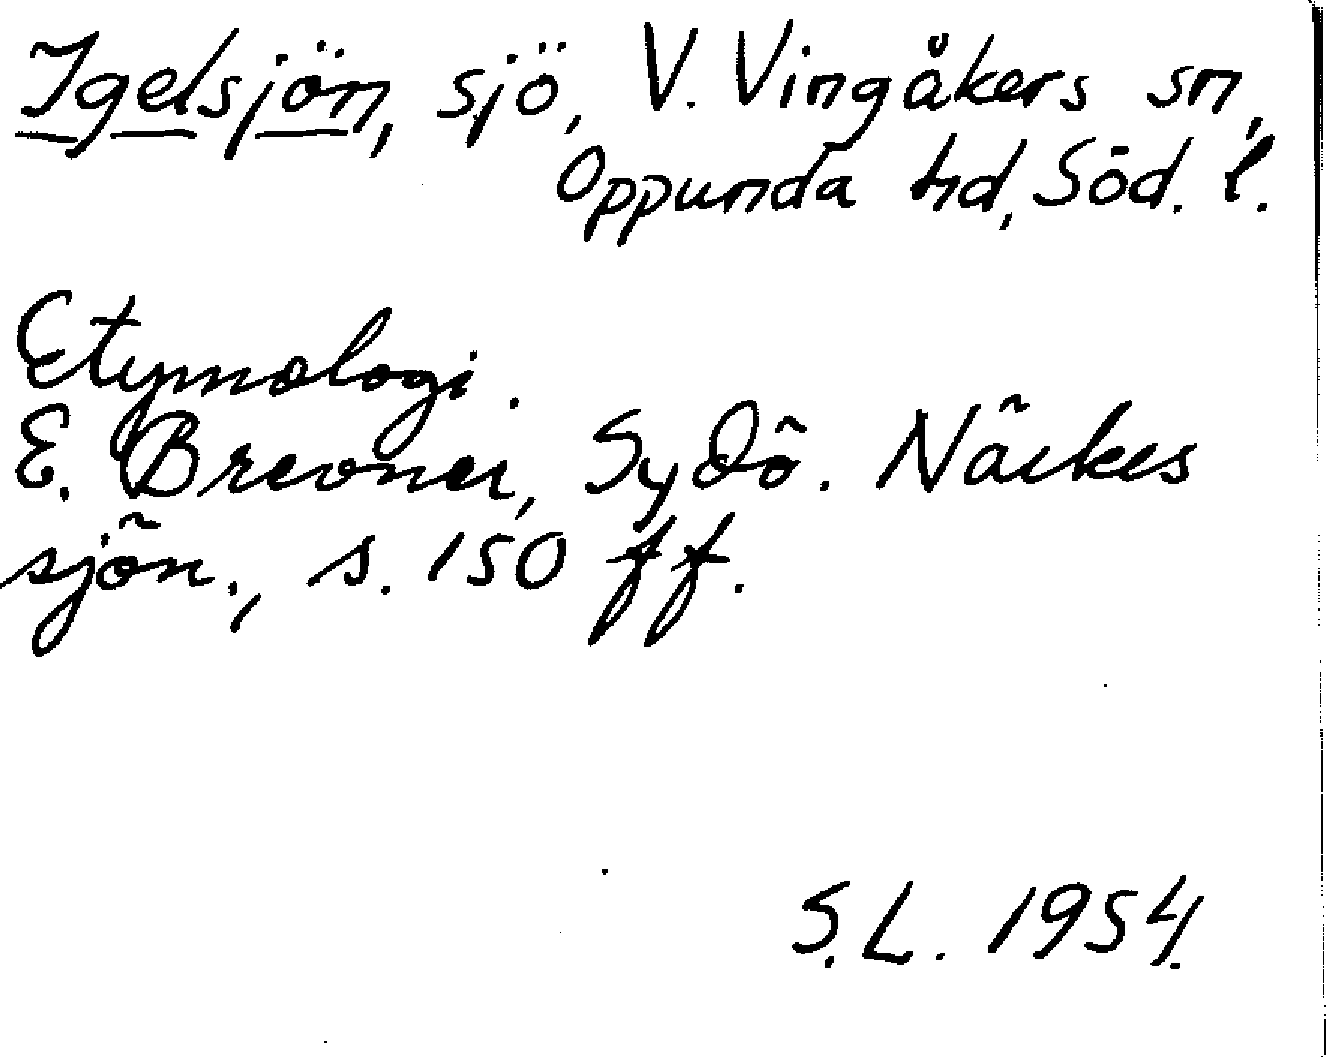 Igelsjön, sjö, V. Vingåkers sn,
Oppunda hd, Söd. l.
Etymologi.
E. Brevner, Sydö. Närkes
sjön., s. 150 ff.
S.L. 1954.